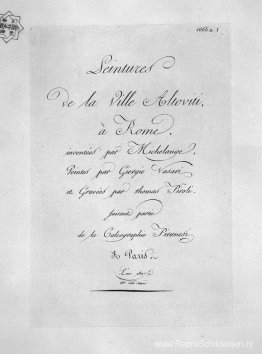 1066 a 1
Peintures
de la Ville Altoviti,
à Rome,
inventées par Michelange,
Peintes par Giorgio Vasari
et Gravées par thomas Piroli
faisant partie
de la Calcographie Piranesi
à Paris
L'an 1807
www.ReproSchilderijen.nl